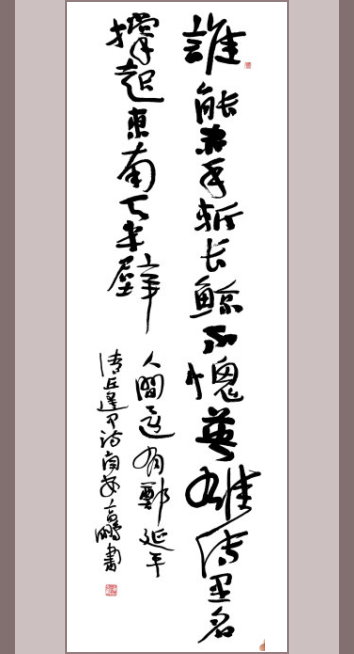 誰能赤手斬长鯨不愧英雄传里名
撐起東南天半壁
人間還有鄭延平
清丘逢甲诗南安鵬書